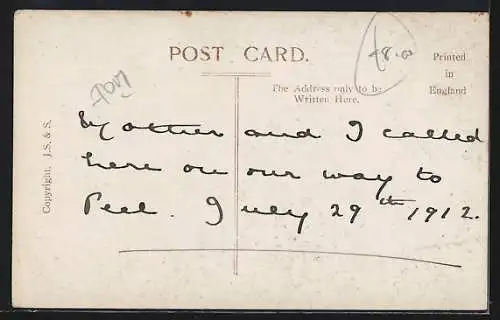 POST CARD.
The Address only to be
Written Here.
Printed
in
England
Copyright. J.S. & S.
Mother and I called
here on our way to
Peel. July 29th 1912.